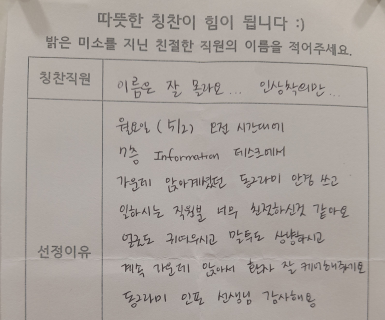 따뜻한 칭찬이 힘이 됩니다 :)
밝은 미소를 지닌 친절한 직원의 이름을 적어주세요.
칭찬직원
이름은 잘 몰라요... 인상착의만...
선정이유
월요일 (5/2) 오전 시간대에
7층 Information 데스크에서
가운데 앉아계셨던 동그라미 안경 쓰고
일하시는 직원분 너무 친절하신것 같아요
얼굴도 귀여우시고 말투도 상냥하시고
계속 가운데 앉아서 환자 잘 케어해주기로
동그라미 인포 선생님 감사해용